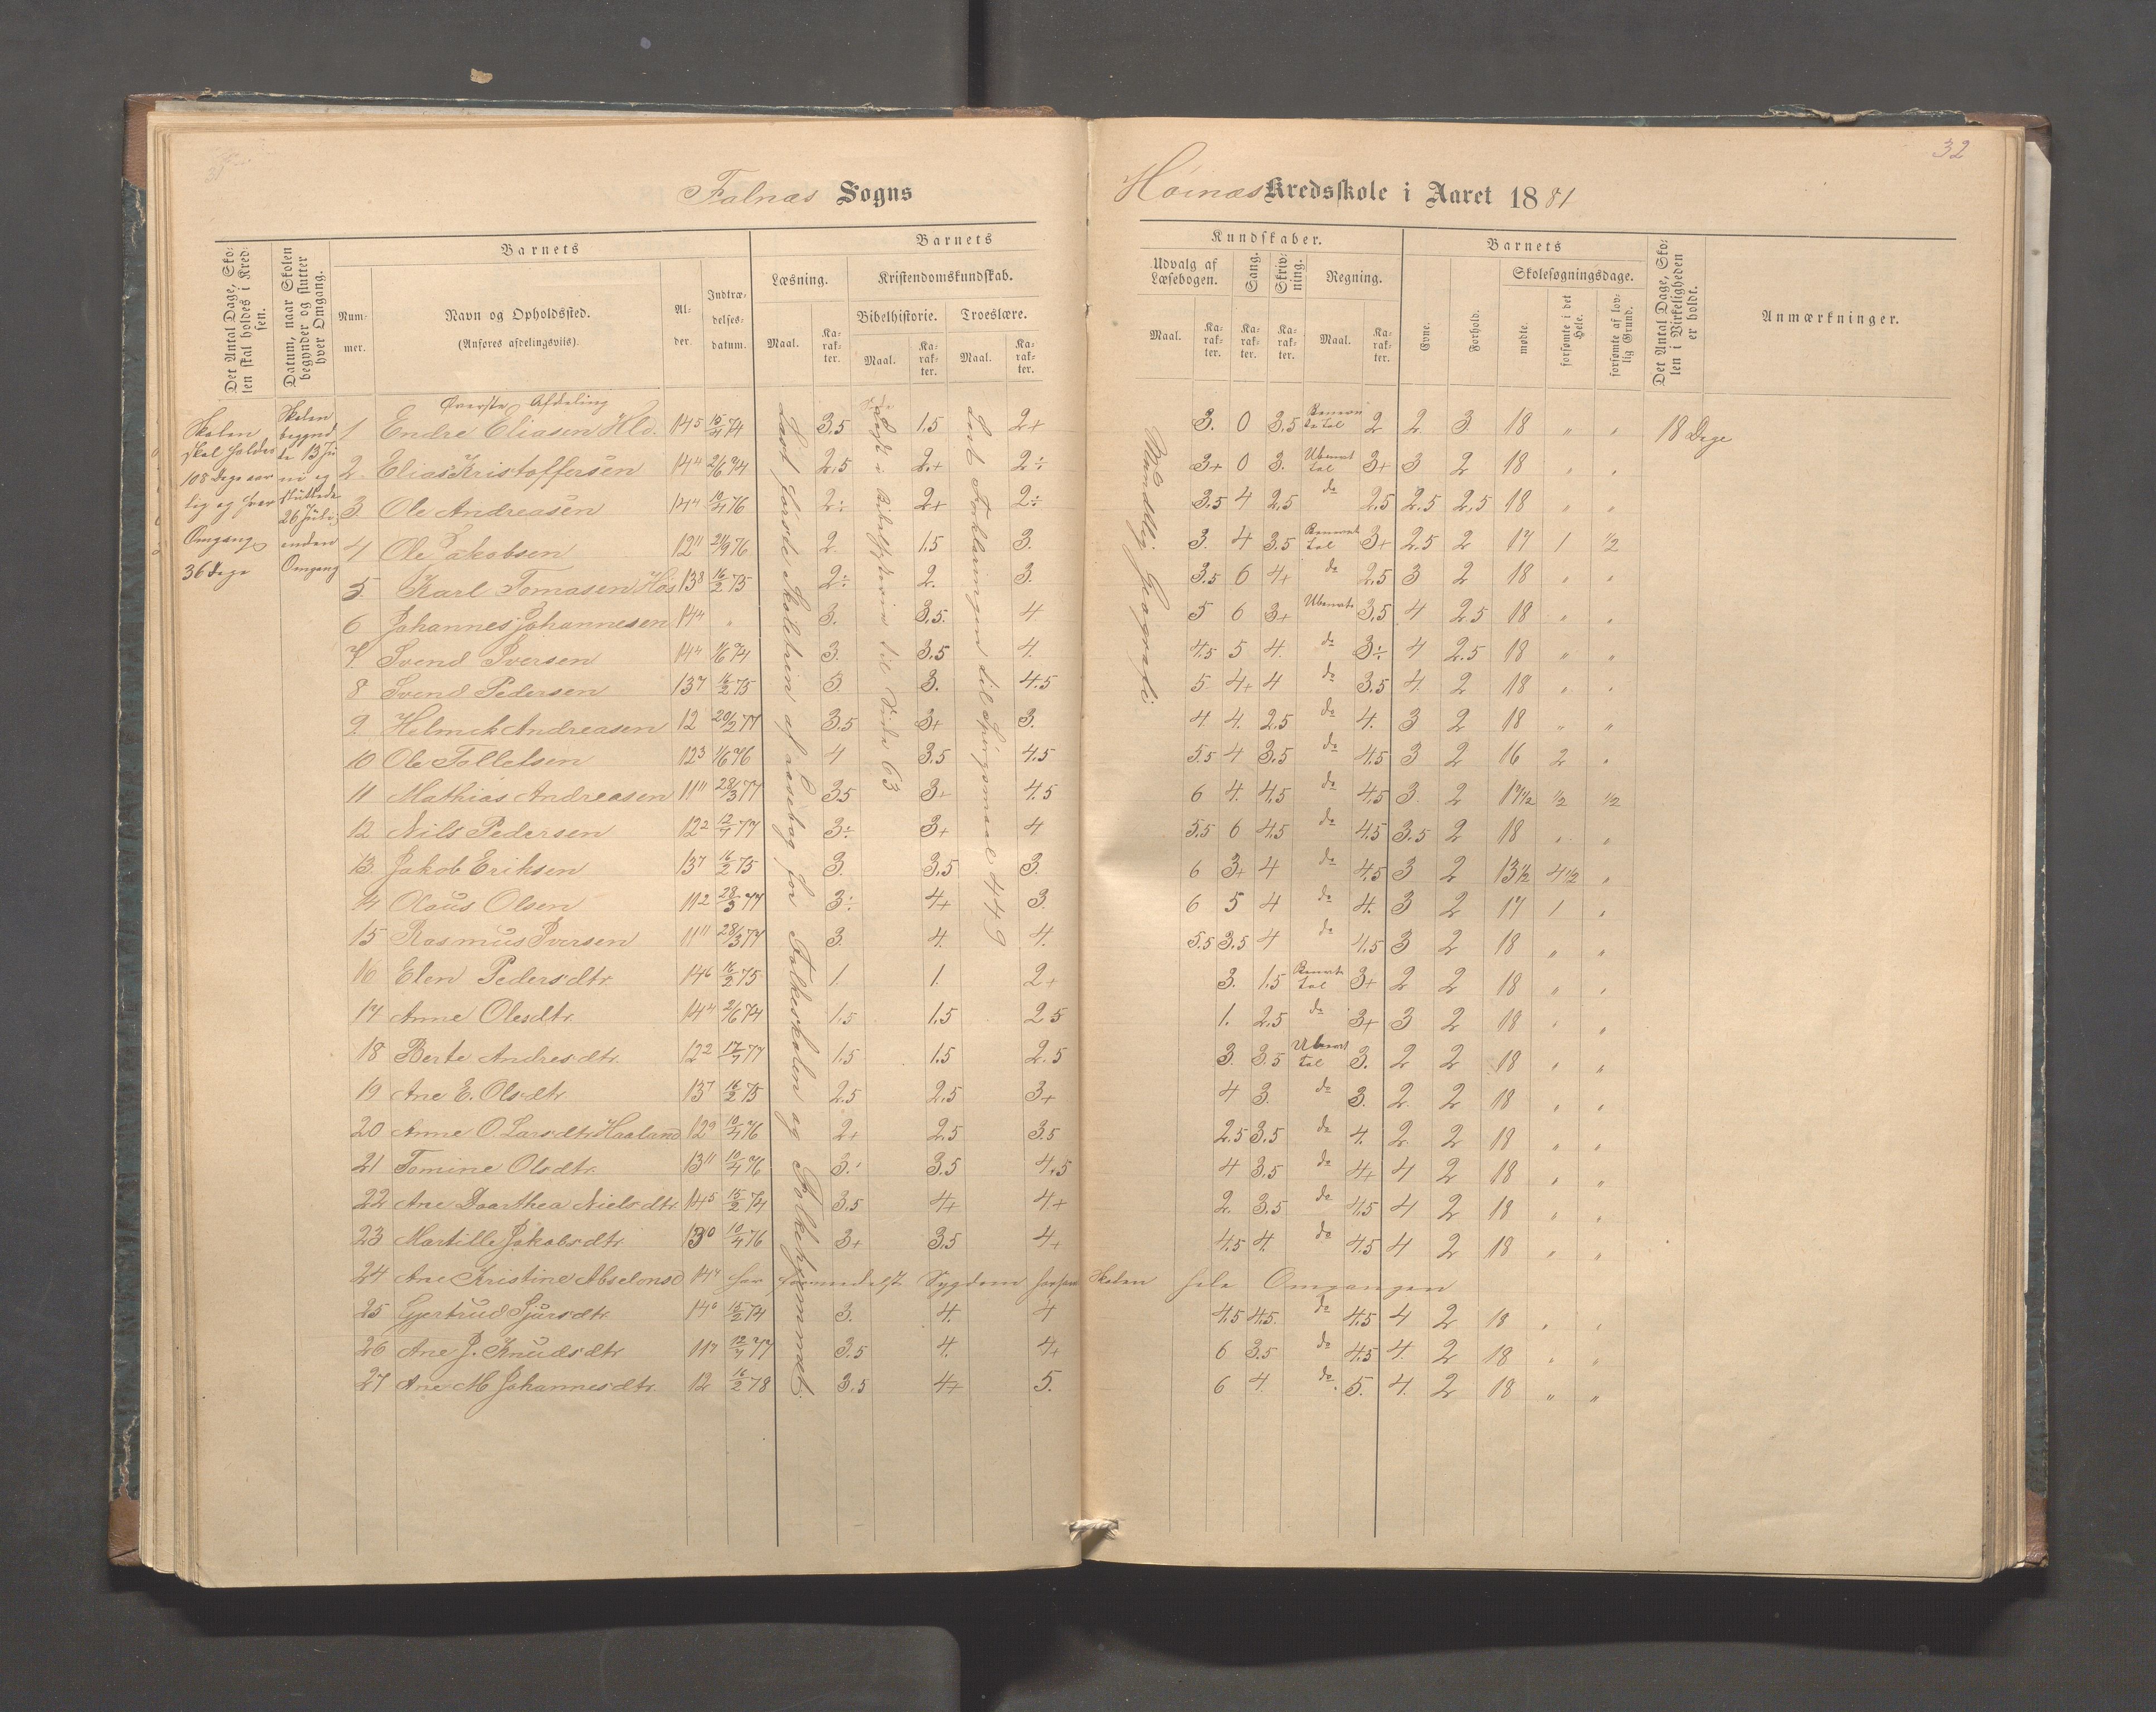 32
Falnæs Sogns
Høinæs Kredsskole i Aaret 1881
Det Antal Dage, Skolen skal holdes i Kredsen.
Datum, naar Skolen begynder og slutter hver Omgang.
Barnets
Nummer.
Navn og Opholdssted.
(Anføres afdelingsviis).
Alder.
Indtrædelsesdatum.
Barnets
Læsning.
Maal.
Karakter.
Kristendomskundskab.
Bibelhistorie.
Maal.
Karakter.
Troeslære.
Maal.
Karakter.
Kundskaber.
Udvalg af Læsebogen.
Maal.
Karakter.
Sang.
Karakter.
Skrivning.
Karakter.
Regning.
Maal.
Karakter.
Barnets
Evne.
Forhold.
Skolesøgningsdage.
mødte.
forsømte i det Hele.
forsømte af lovlig Grund.
Det Antal Dage, Skolen i Virkeligheden er holdt.
Anmærkninger.
Skolen
skal holdes
108 Dage aar
lig og hver
Omgang
36 Dage
Skolen
begynd
te 13 Ju
ni og
sluttede
26 Juli,
anden
Omgang
Øverste Afdeling
Læst første Skoletrin af Læsebog for Folkeskolen og Folkehjemmet.
Læst i Bibelhistorie til Side 63
Læst Forklaringen til Spørgsmaal 449
Mundtlig Geografi
1 Endre Eliasen Hld. 14 5 15/4 74 3,5 1.5 2+ 3. 0 3.5 Benævn te tal 2 2. 3. 18 " " 18 Dage
2. Elias Kristoffersen 14 4 2/6 74 2,5 2+ 2÷ 3+ 0 3. Ubenævt tal 3+ 3 2 18 " "
3. Ole Andreasen 14 4 10/4 76 2÷ 2+ 2÷ 3.5 4 2,5 do 2,5 2.5 2,5 18 " "
4 Ole Jakobsen 12 11 21/9 76 2. 1.5 3. 3. 4 3.5 Benævnt tal 3+ 2.5 2 17 1 1/2
5. Karl Tomasen Høi 13 8 16/2 75 2÷ 2. 3. 3.5 6 4+ do 2,5 3 2 18 " "
6 Johannes Johannesen 14 11 " 3. 3.5. 4 5 6 3+ Ubenævte 3,5 4 2.5 18 " "
7. Svend Iversen 14 4 1/6 74 3. 3.5 4. 4.5 5 4. do 3÷ 4 2.5 18 " "
8 Svend Pedersen 13 7 16/2 75 3 3. 4.5 5 4+ 4 do 3.5 4. 2 18 " "
9. Helmik Andreasen 12 20/2 77 3.5 3+ 3. 4 4. 2.5 do 4. 3 2 18 " "
10 Ole Tolletsen 12 3 1/6 76 4 3.5 4.5 5.5 4 3.5 do 4.5 3 2 16 2 "
11 Mathias Andreasen 11 11 28/3 77 3.5 3+ 4.5 6 4. 4.5 do 4.5 3. 2 17 1/2 1/2 1/2
12 Nils Pedersen 12 2 12/7 77 3÷ 3+ 4 5.5 6 4.5 do 4.5 3.5 2 18 " "
13. Jakob Eriksen 13 7 16/2 75 3. 3.5 3. 6 3+ 4 do 4.5 3 2 13 1/2 4 1/2 "
14 Olaus Olsen 11 2 28/3 77 3÷ 4+ 3. 6 5 4 do 4. 3 2 17 1 "
15 Rasmus Iversen 11 11 28/3 77 3. 4. 4. 5.5 3.5 4 do 4.5 3 2 18 " "
16 Elen Pedersdtr. 14 6 16/2 75 1. 1. 2+ 3. 1.5 Benævnte tal 3+ 2 2 18 " "
17 Anne Olesdtr. 14 4 2/6 74 1.5 1.5 2 5 1. 2.5 do 3+ 3 2 18 " "
18 Berte Andresdtr. 12 2 17/7 77 1.5 1.5 2.5 3. 3.5 Ubenævt tal 3. 2 2 18 " "
19 Ane E. Olsdtr. 13 7 16/2 75 2.5 2,5 3+ 4 3. do 3. 2. 2 18 " "
20 Anne O. Larsdtr. Haaland 12 9 10/4 76 2+ 2.5 3.5 2.5 3.5 do 4. 2. 2 18 " "
21 Tomine Olsdtr. 13 11 10/4 76 3÷ 3.5 4.5 4 3.5 do 4+ 4 2 18 " "
22 Ane Doarthea Nielsdtr 14 5 15/2 74 3.5 4+ 4+ 2. 3.5 do 4.5 4 2 18 " "
23 Martille Jakobsdtr. 13 0 10/4 76 3+ 3.5 4+ 4.5 4. do 4.5 4 2 18 " "
24 Ane Kristine Abselonsd 14 4 har formedelst Sygdom forsømt Skolen hele Omgangen
25 Gjertrud Sjursdtr. 14 0 15/2 74 3. 4. 4 4.5 4.5. do 4.5 4 2 18 " "
26 Ane J. Knudsdtr 11 7 12/7 77 3.5 4. 4+ 6 3.5 do 4.5 4. 2 18 " "
27 Ane M Johannesdtr. 12 16/2 78 3.5 4+ 5. 6 4. do. 5. 4. 2 18 " "